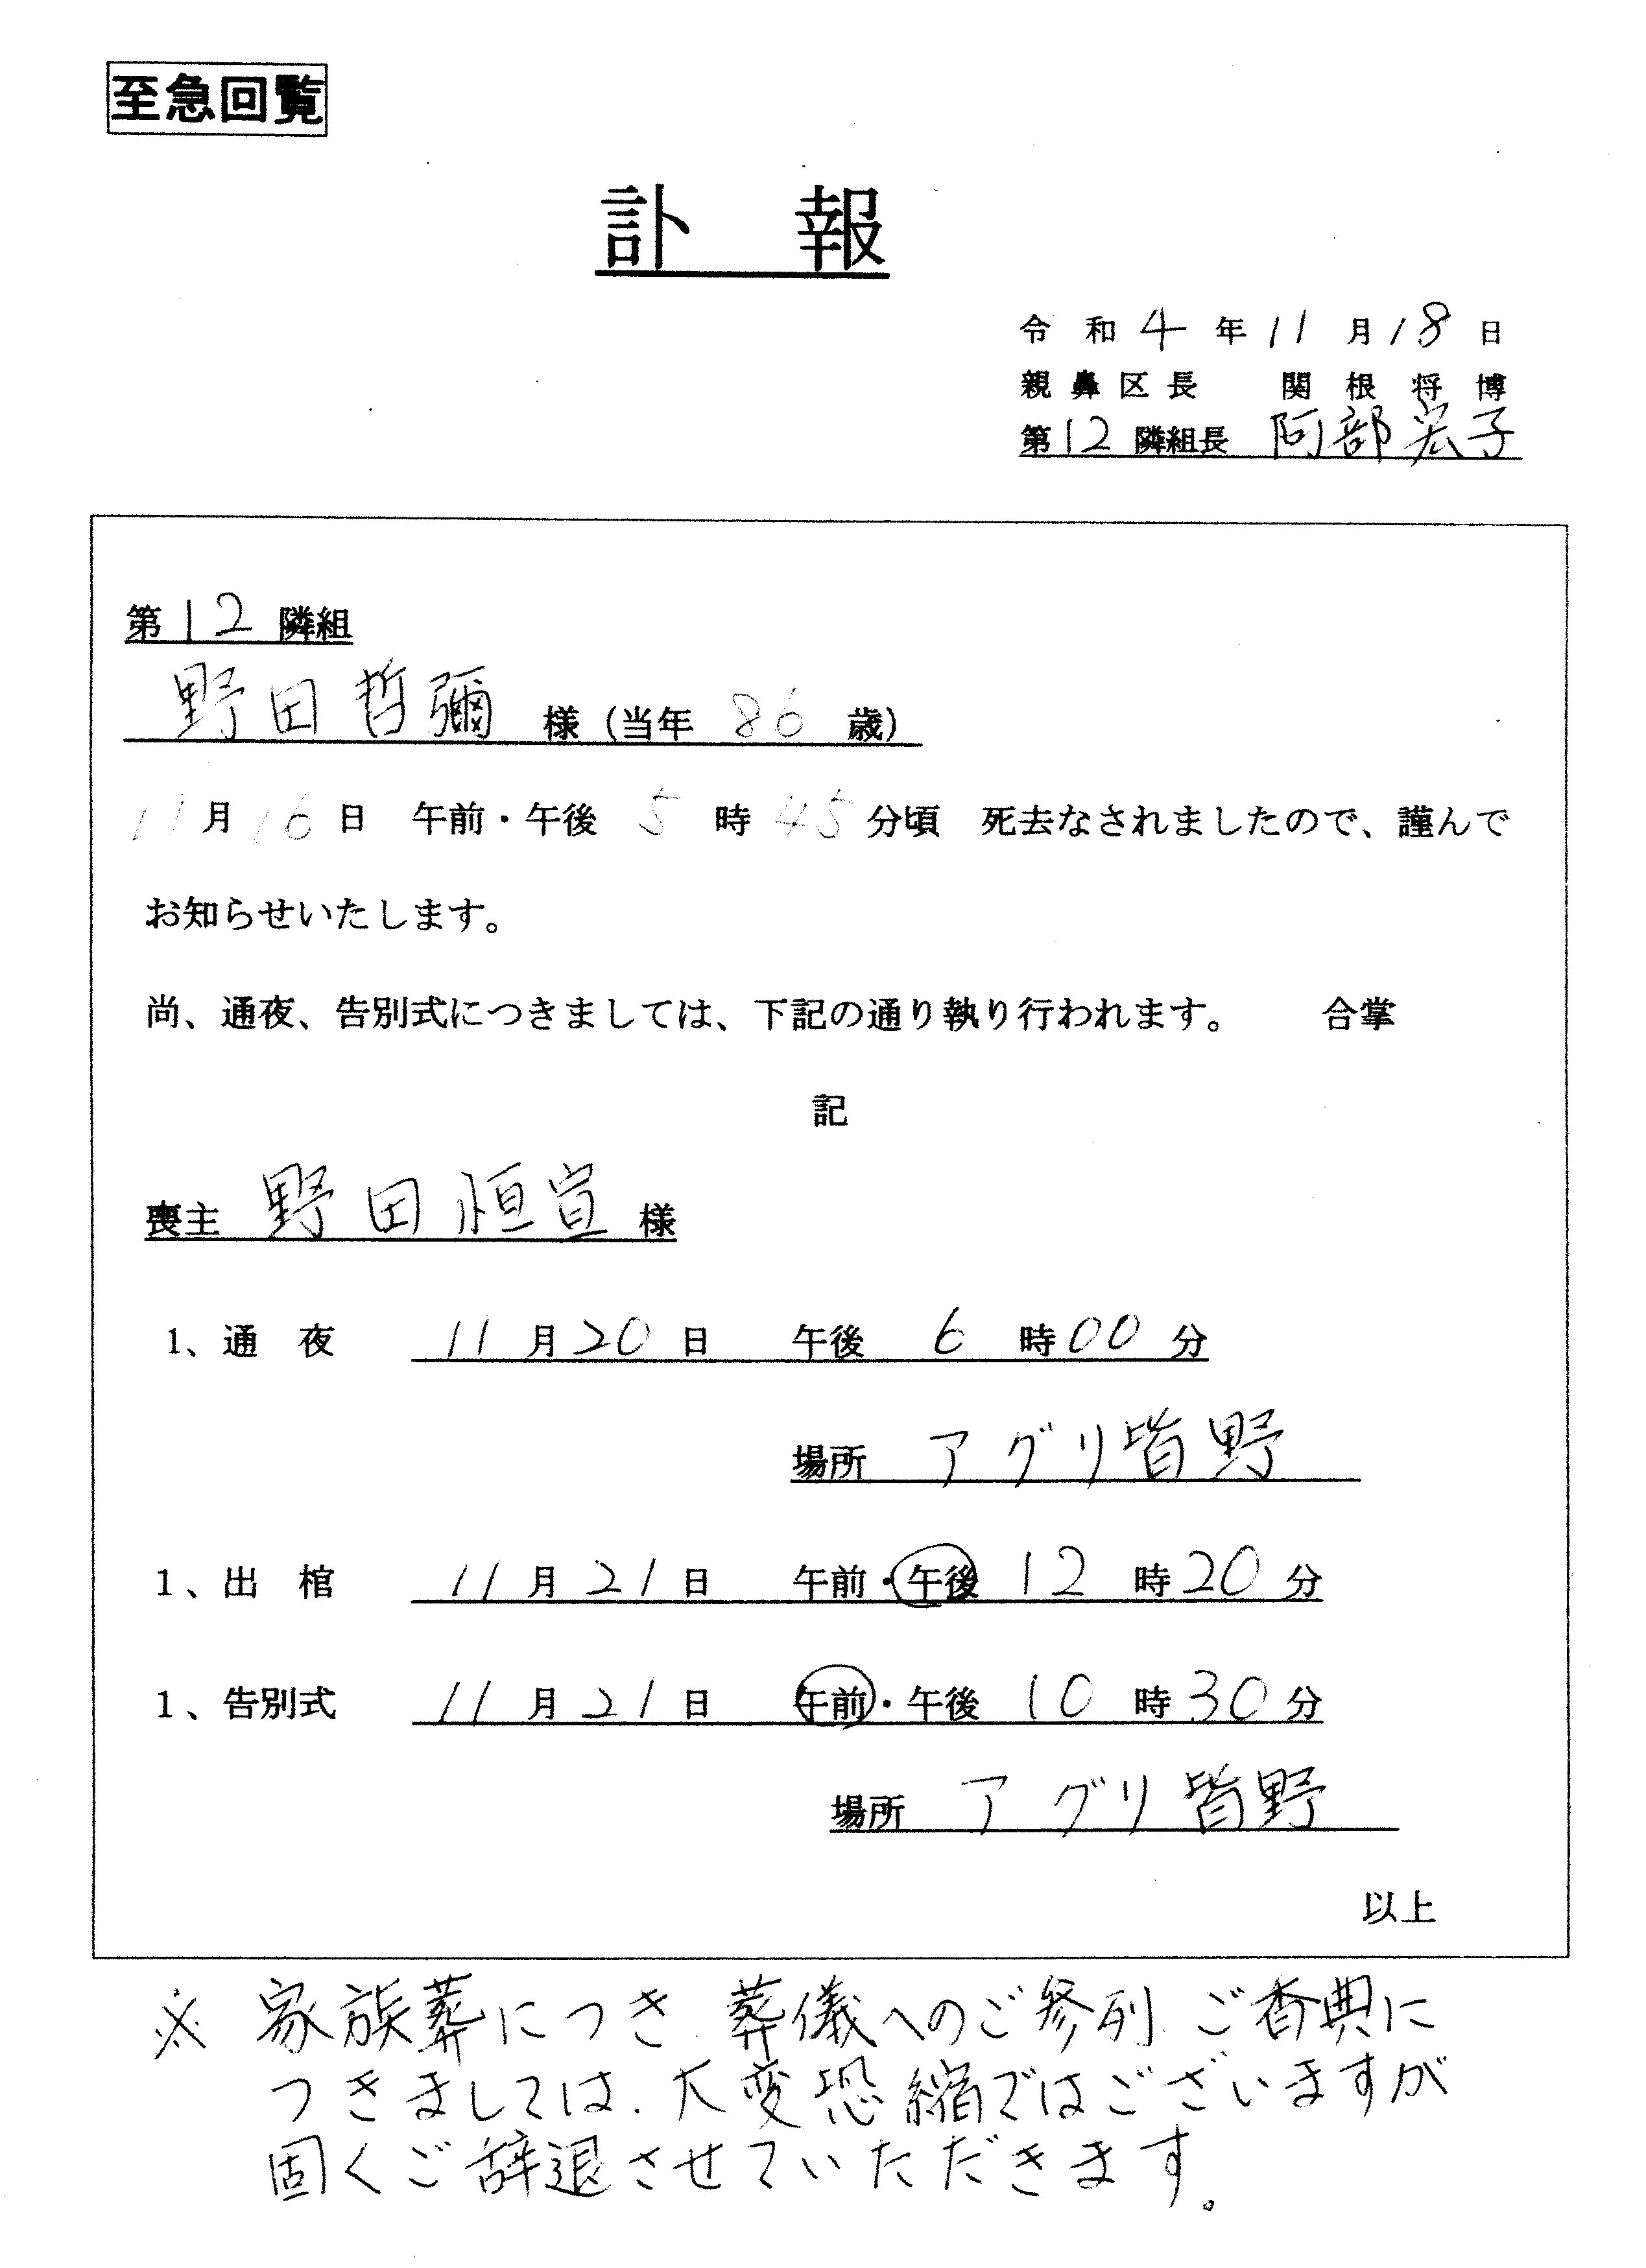 至急回覧
訃 報
令和4年11月18日
親鼻区長 関根将博
第12隣組長 阿部宏子
第12隣組
野田哲彌 様(当年 86 歳)
11月16日 午前・午後 5時45分頃 死去なされましたので、謹んで
お知らせいたします。
尚、通夜、告別式につきましては、下記の通り執り行われます。 合掌
記
喪主 野田恒宣 様
1、通 夜 11月20日 午後 6時00分
場所 アグリ皆野
1、出 棺 11月21日 午前・午後 12時20分
1、告別式 11月21日 午前・午後 10時30分
場所 アグリ皆野
以上
※ 家族葬につき、葬儀へのご参列、ご香典に
つきましては、大変恐縮ではございますが
固くご辞退させていただきます。